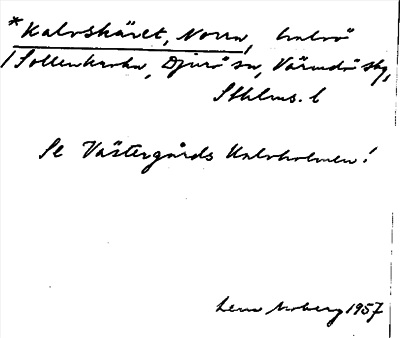 *Kalvskäret, Norra, halvö
/Sollenkroka, Djurö sn, Värmdö skg,
Sthlms. l
Se Västergårds Kalvholmen!
Lena Moberg 1957